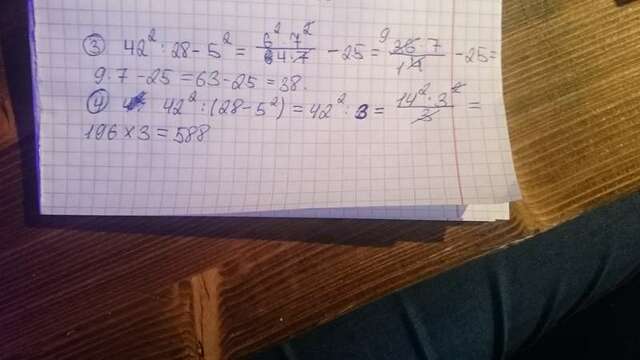 ③ 42² : 28 - 5² = 6² · 7² / 4 · 7 - 25 = 9 36 · 7 / 1 4 - 25 =
9 · 7 - 25 = 63 - 25 = 38.
④ 42² : (28 - 5²) = 42² : 3 = 14² · 3² / 3 =
196 × 3 = 588